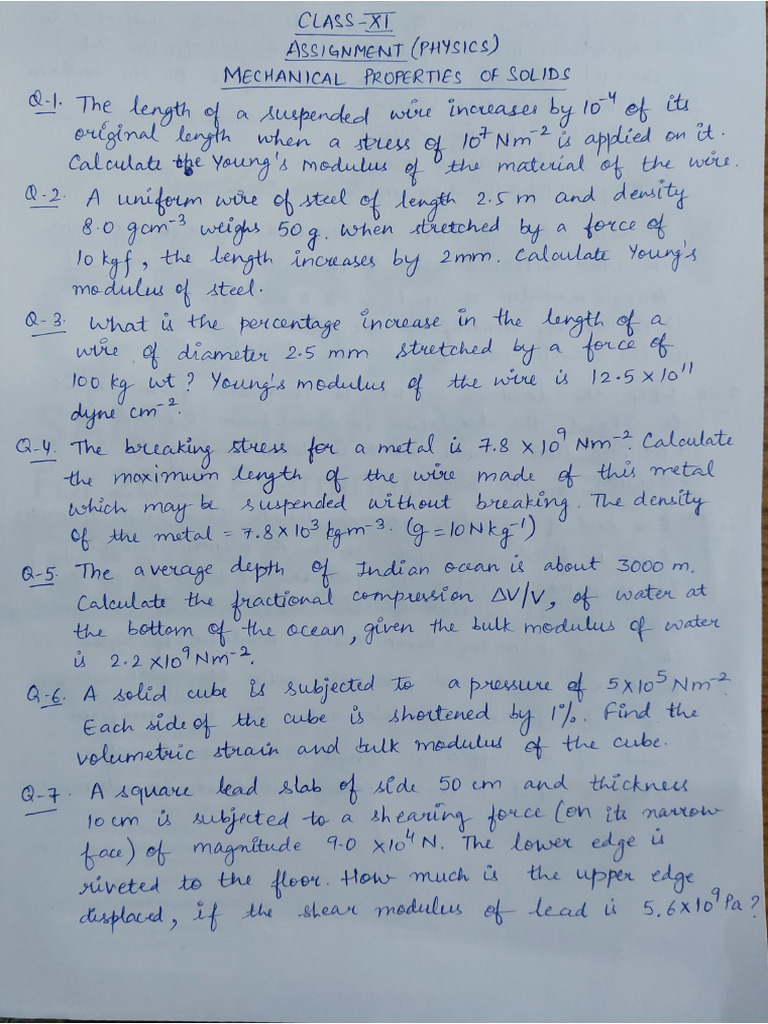 CLASS-XI
ASSIGNMENT (PHYSICS)
MECHANICAL PROPERTIES OF SOLIDS
Q-1. The length of a suspended wire increases by 10⁻⁴ of its
original length when a stress of 10⁷ Nm⁻² is applied on it.
Calculate the Young's modulus of the material of the wire.
Q-2. A uniform wire of steel of length 2.5 m and density
8.0 gcm⁻³ weighs 50 g. when stretched by a force of
10 kgf, the length increases by 2mm. Calculate Young's
modulus of steel.
Q-3. What is the percentage increase in the length of a
wire of diameter 2.5 mm stretched by a force of
100 kg wt? Young's modulus of the wire is 12.5 × 10¹¹
dyne cm⁻².
Q-4. The breaking stress for a metal is 7.8 × 10⁹ Nm⁻². Calculate
the maximum length of the wire made of this metal
which may be suspended without breaking. The density
of the metal = 7.8 × 10³ kgm⁻³. (g = 10 N kg⁻¹)
Q-5. The average depth of Indian ocean is about 3000 m.
Calculate the fractional compression ΔV/V, of water at
the bottom of the ocean, given the bulk modulus of water
is 2.2 × 10⁹ Nm⁻².
Q-6. A solid cube is subjected to a pressure of 5 × 10⁵ Nm⁻².
Each side of the cube is shortened by 1%. Find the
volumetric strain and bulk modulus of the cube.
Q-7. A square lead slab of side 50 cm and thickness
10 cm is subjected to a shearing force (on its narrow
face) of magnitude 9.0 × 10⁴ N. The lower edge is
riveted to the floor. How much is the upper edge
displaced, if the shear modulus of lead is 5.6 × 10⁹ Pa?